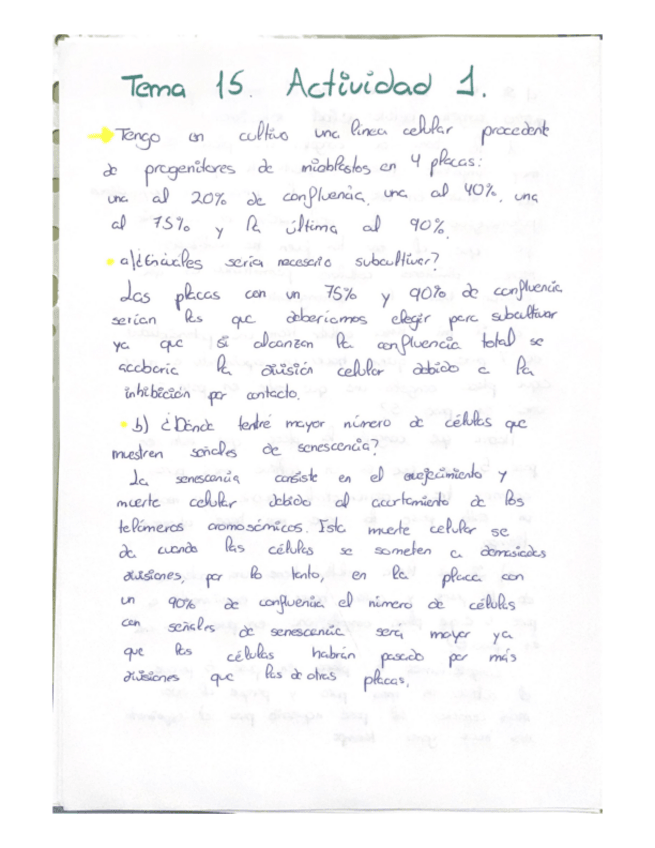 Tema 15. Actividad 1.
Tengo en cultivo una línea celular procedente
de progenitores de mioblastos en 4 placas:
una al 20% de confluencia, una al 40%, una
al 75% y la última al 90%.
a) ¿Cuáles sería necesario subcultivar?
Las placas con un 75% y 90% de confluencia
serían las que deberíamos elegir para subcultivar
ya que si alcanzan la confluencia total se
acabaría la división celular debido a la
inhibición por contacto.
b) ¿Dónde tendré mayor número de células que
muestren señales de senescencia?
La senescencia consiste en el envejecimiento y
muerte celular debido al acortamiento de los
telómeros cromosómicos. Esta muerte celular se
da cuando las células se someten a demasiadas
divisiones, por lo tanto, en la placa con
un 90% de confluencia el número de células
con señales de senescencia será mayor ya
que las células habrán pasado por más
divisiones que las de otras placas.